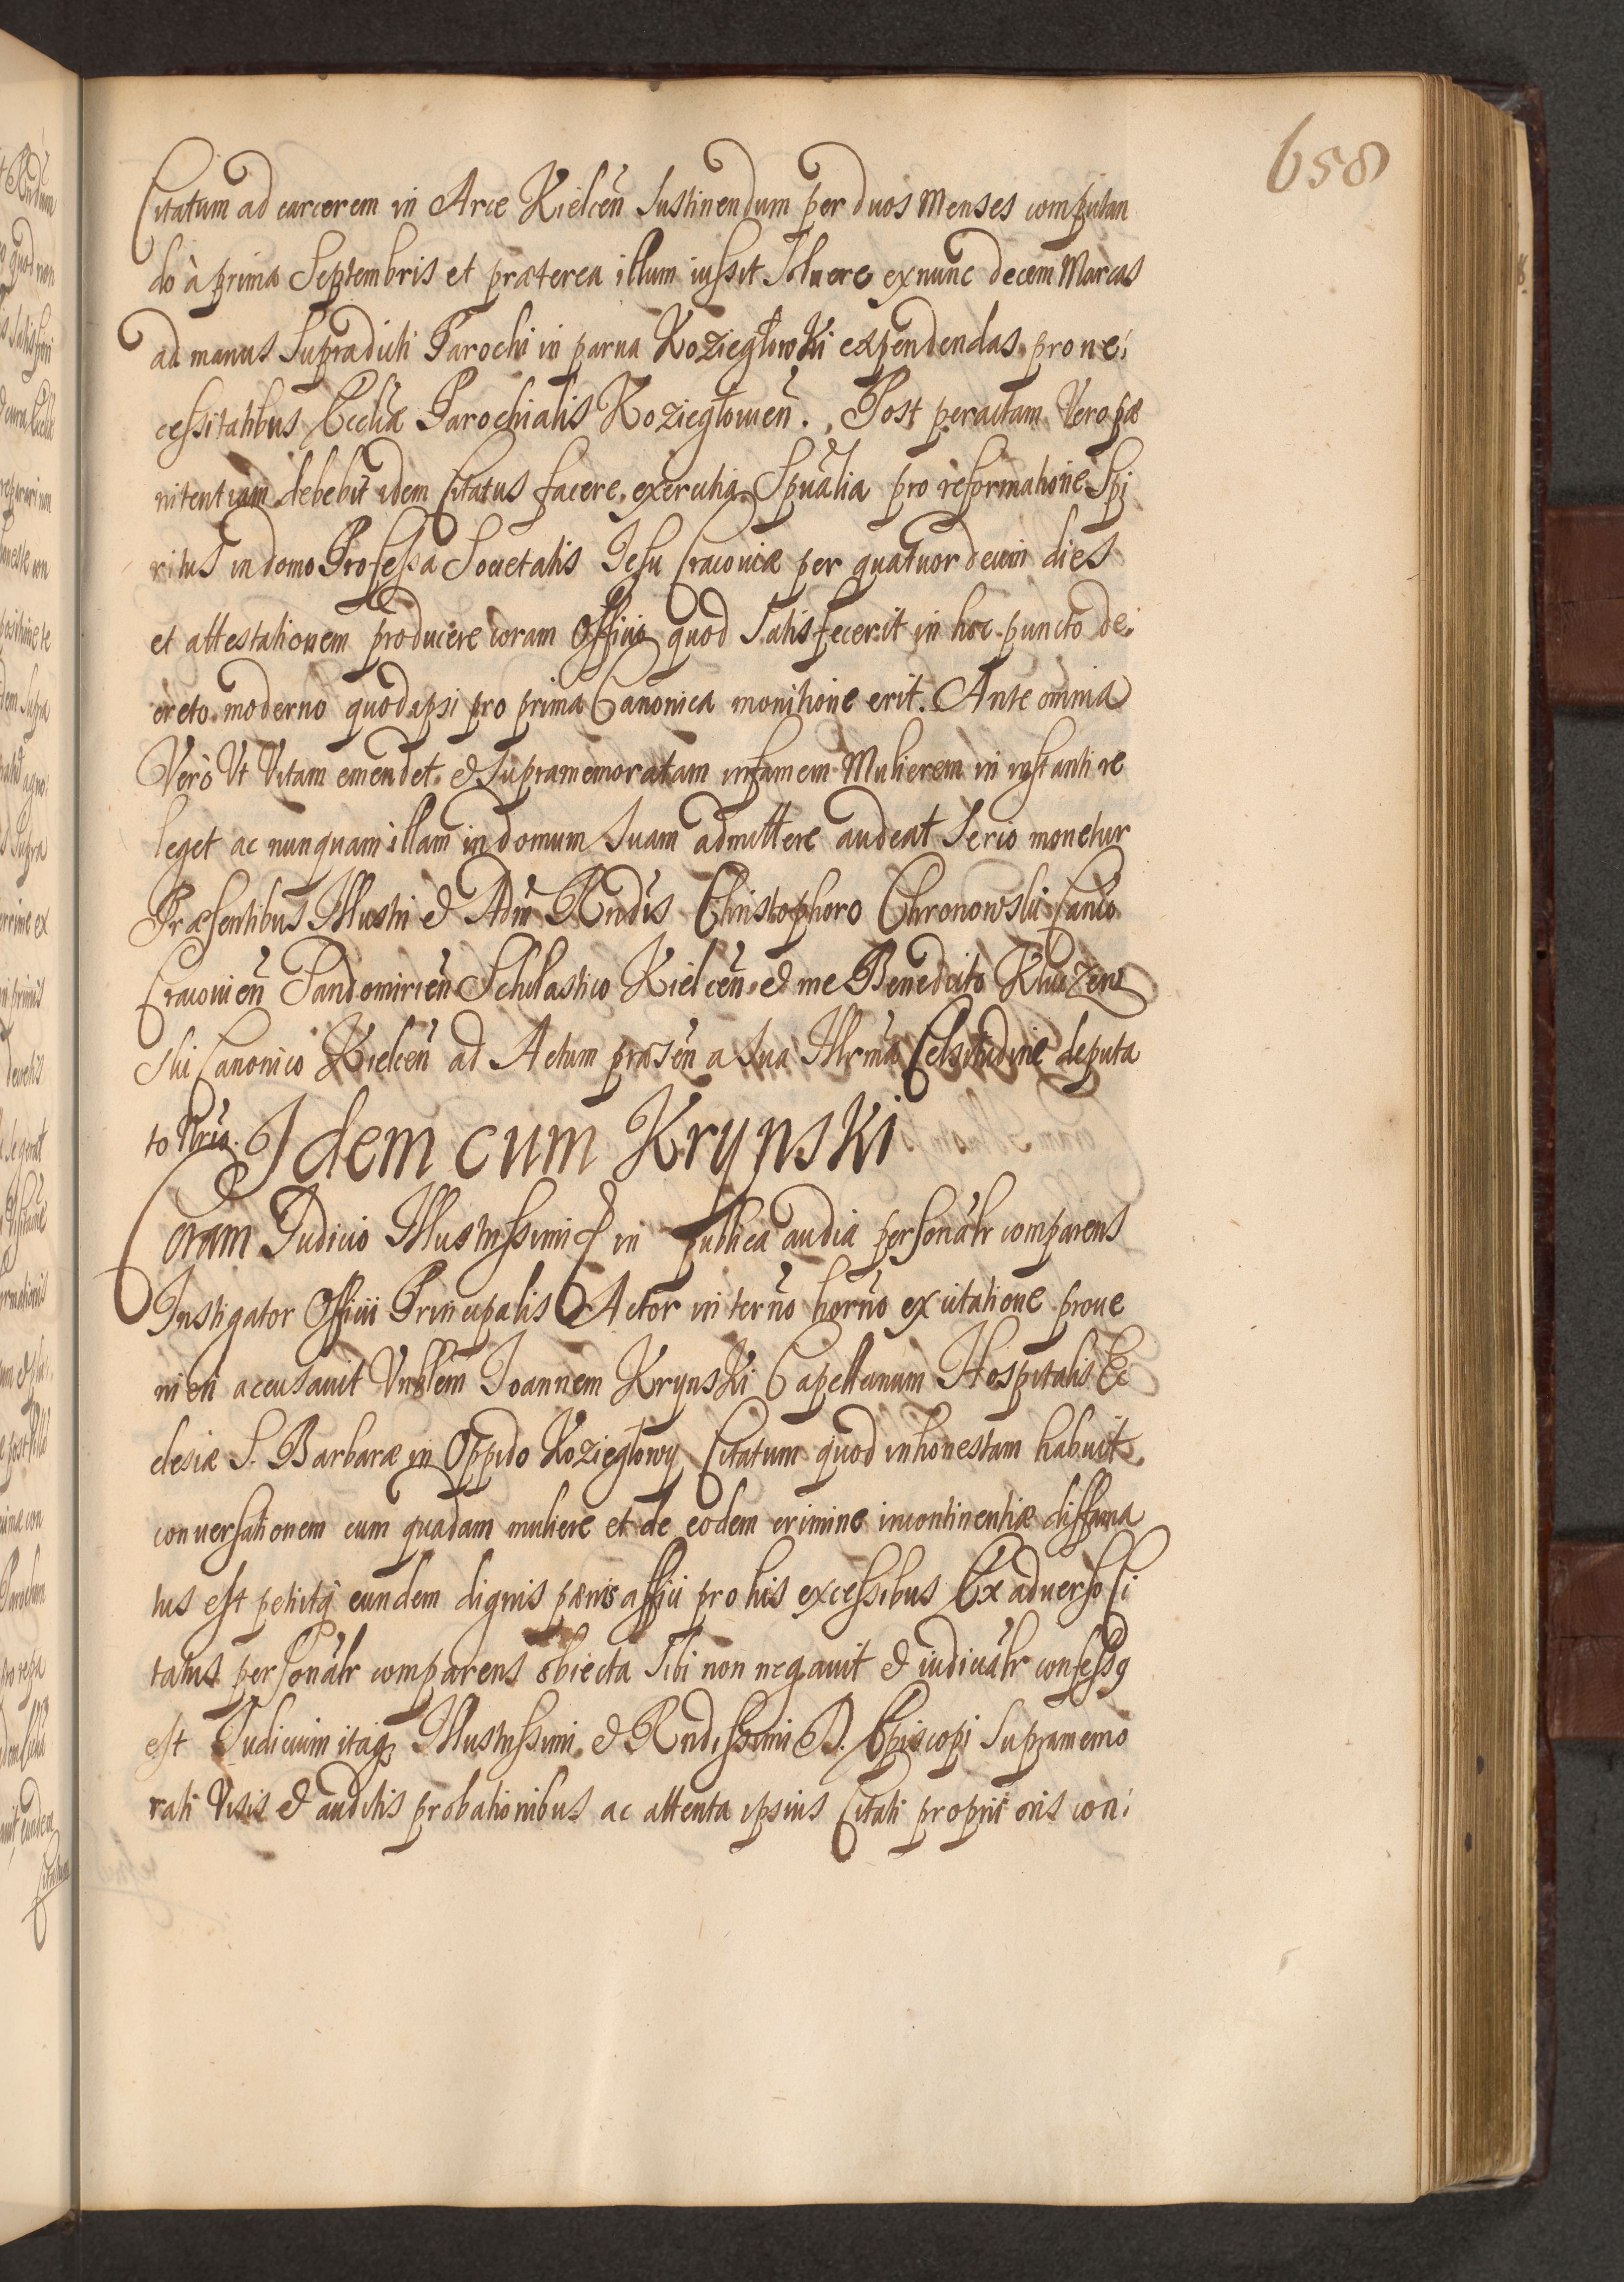 658
Citatum ad carcerem in Arce Kielceñ Sustinendum per duos Menses computan
do à prima Septembris et præterea illum iussit Soluere ex nunc decem Marcas
ad manus Supradicti Parochi in parua Koziegłowki expendendas pro ne
cessitatibus Eccliæ Parochialis Koziegłouień. Post peractam Vero pæ
nitentiam debebit idem Citatus facere exercitia Spualia pro reformatione Spi
ritus in domo Professa Societatis Jesu Cracouiæ per quatuordecim dies
et attestationem producere coram Officio quod Satisfecerit in hoc puncto de
creto moderno quod ipsi pro prima Canonica monitione erit. Ante omnia
Verò Vt Vitam emendet & Supramemoratam infamem Mulierem in instanti re
leget ac nunquam illam in domum Suam admittere audeat Serio monetur
Præsentibus Illustri & Adm Rndis Christophoro Chronowski Canco
Cracouień Sandomirień Scholastico Kielceñ & me Benedicto Kluczew
ski Canonico Kielceñ ad Actum præseñ a Sua Illrma Celsitudine deputa
to Nrio. Idem cum Krynski
Coram Judicio Illustrissimi & in publica audia personalr comparens
Instigator Officii Principalis Actor in terño horño ex citatione proue
nieñ accusauit Vnblem Joannem Krynski Capellanum Hospitalis Ec
clesiæ S. Barbaræ in Oppido Koziegłowy Citatum quod inhonestam habuit
conuersationem cum quadam muliere et de eodem crimine incontinentiæ diffama
tus est petitq eundem dignis pænis affici pro his excessibus Ex aduerso Ci
tatus personalr comparens obiecta Sibi non negauit & iudicialr confessq
est Judicium itaq Illustrissimi & Rndissimi D. Episcopi Supramemo
rati Visis & auditis probationibus ac attenta ipsius Citati proprii oris con